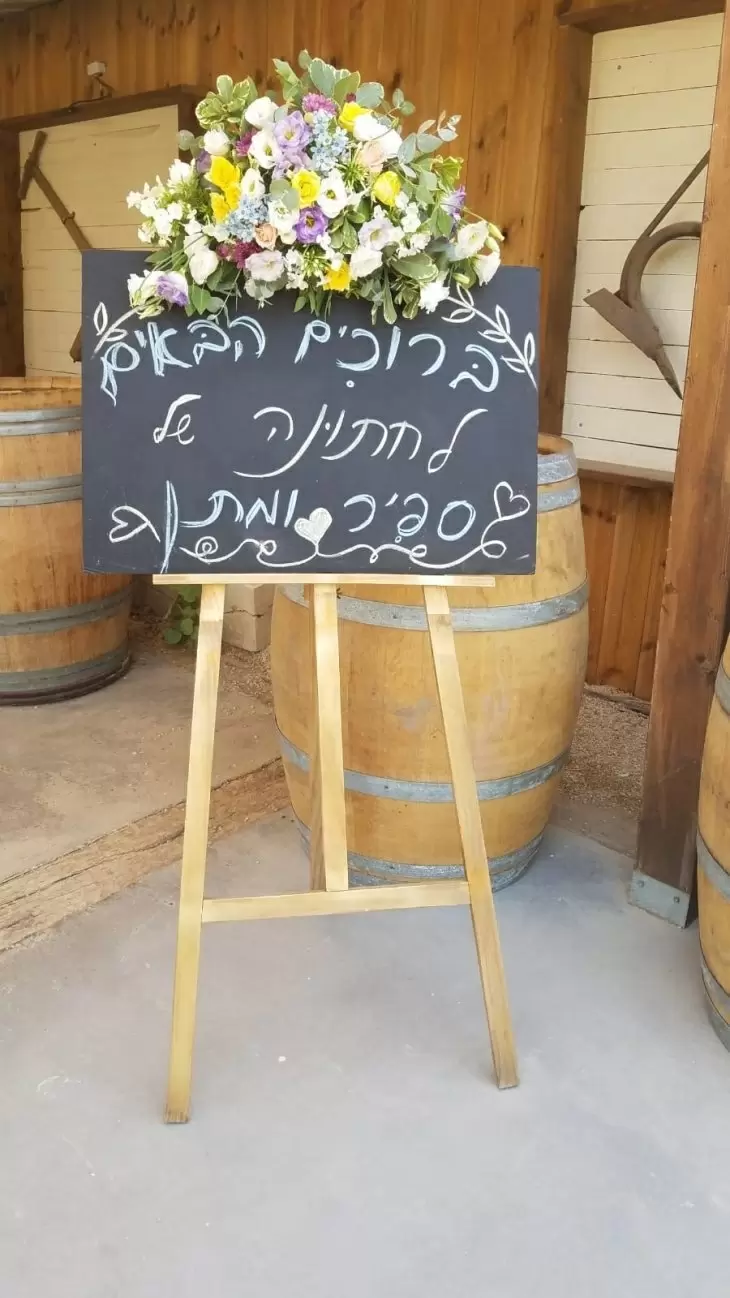 ברוכים הבאים
לחתונה של
ספיר ומתן